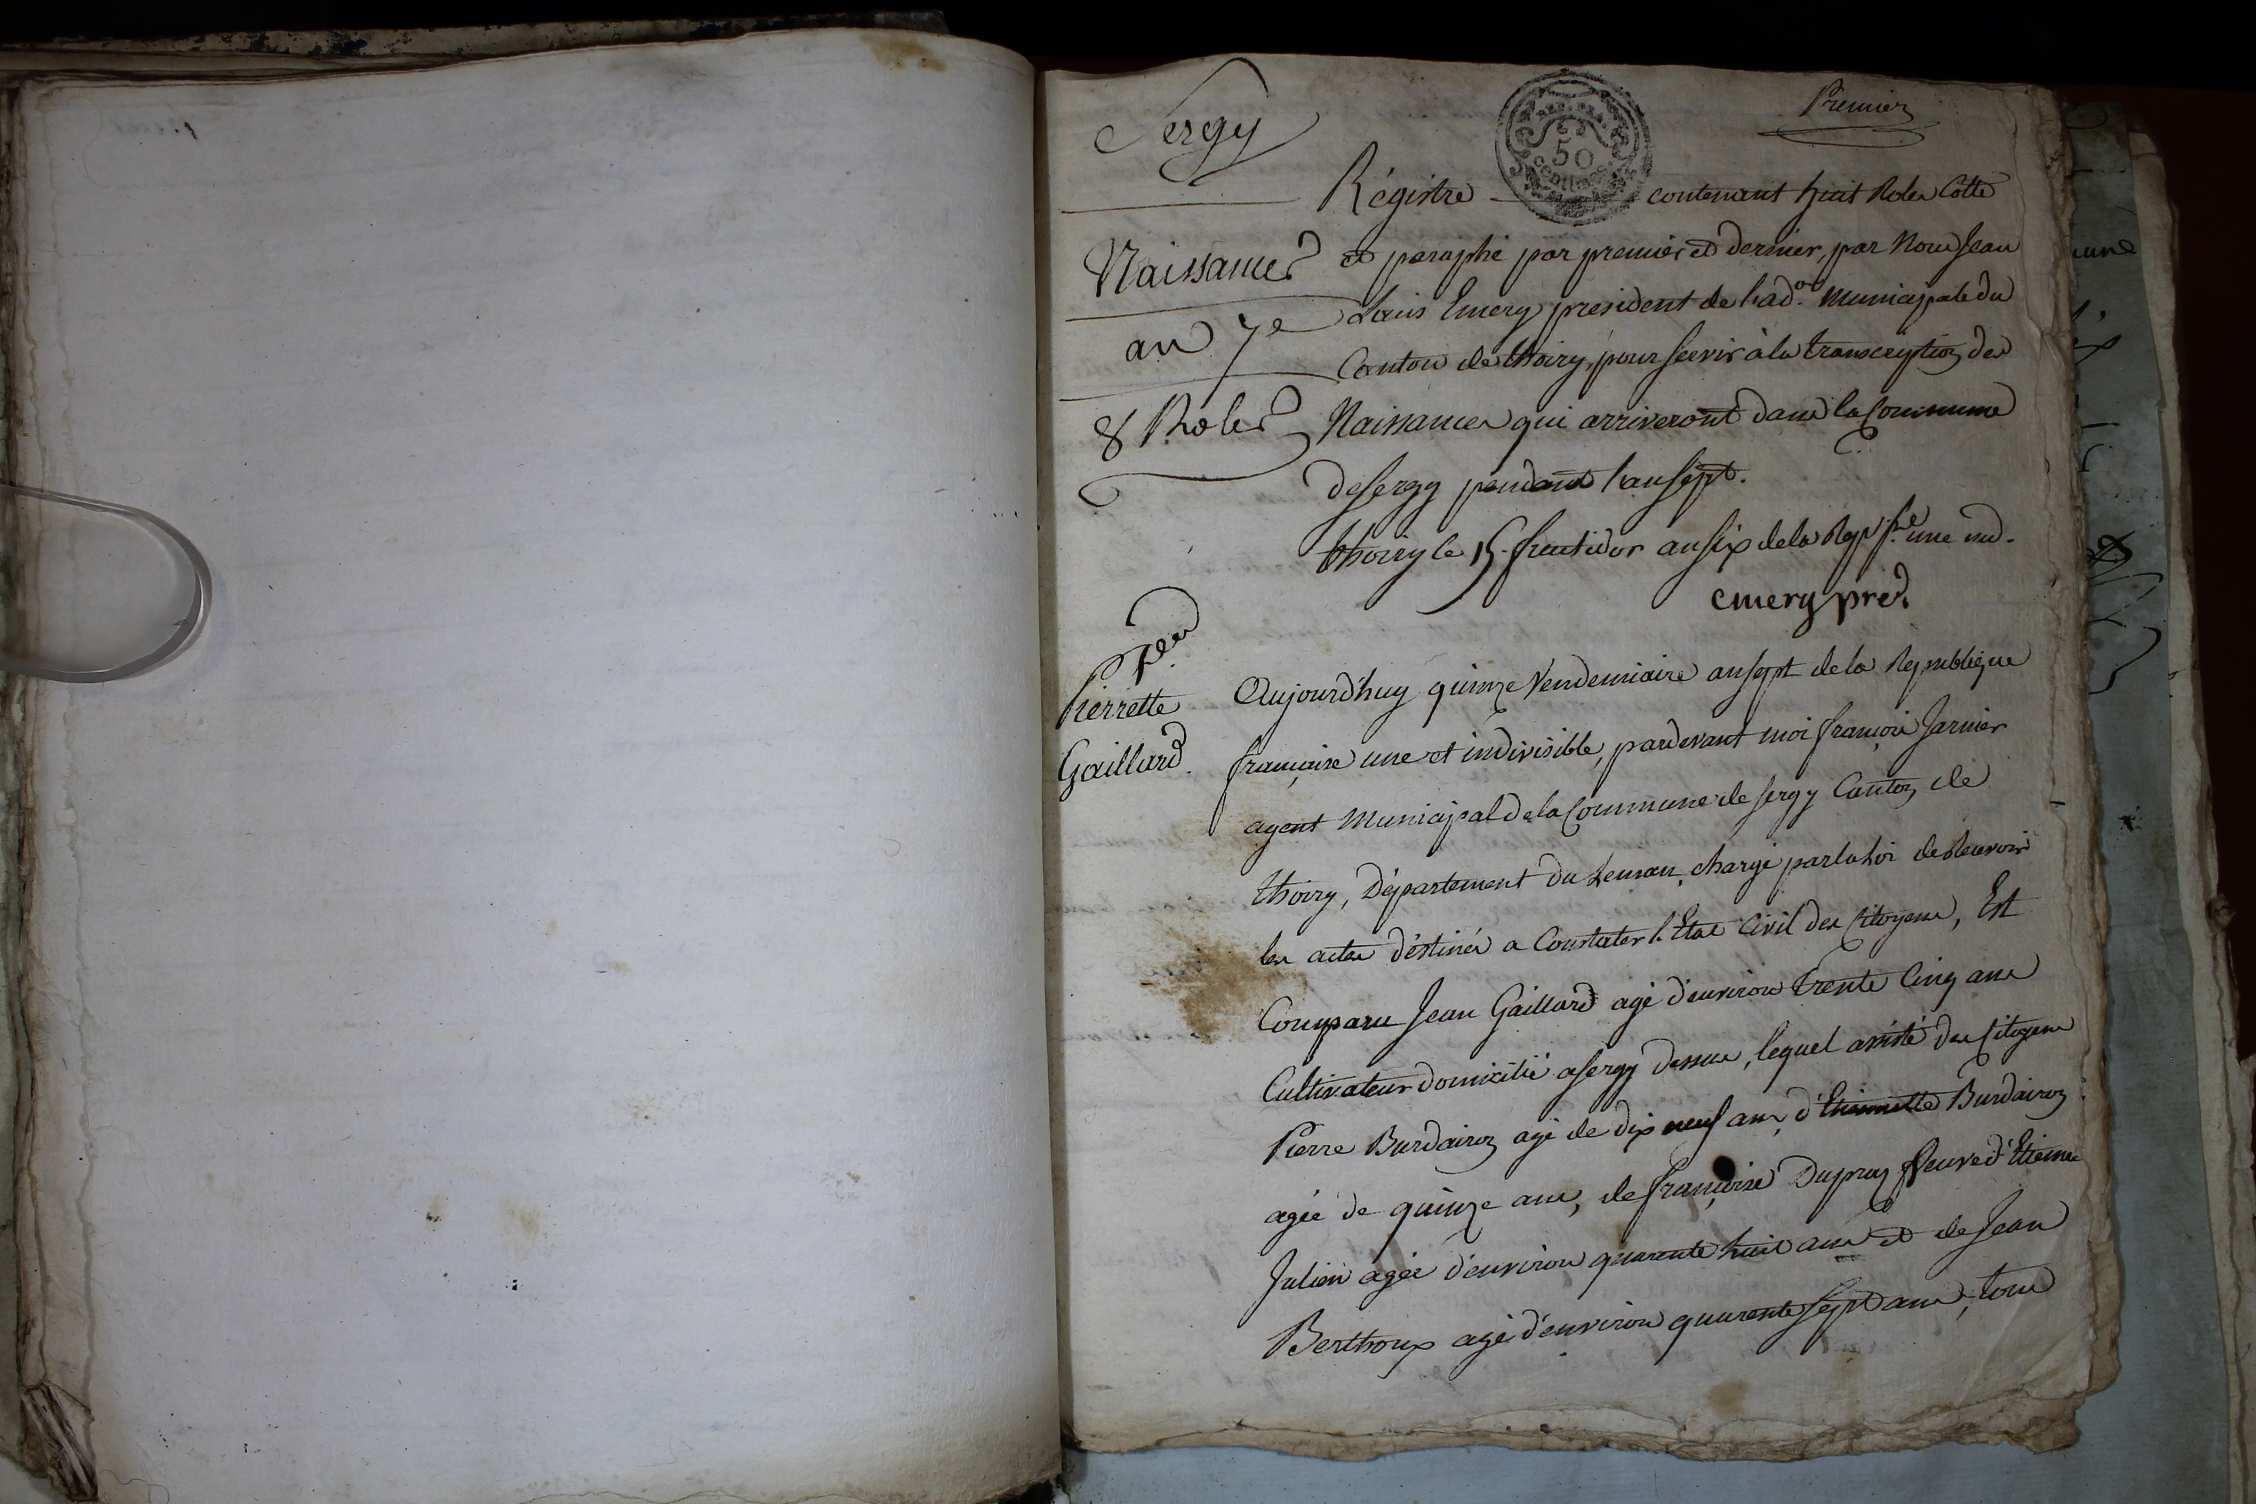 Sergy
Premier
50
centimes
Naissances
an 7e
8 Roles
Régistre contenant huit Roles Cotté
et paraphé par premier et dernier, par Nous Jean
Louis Emery president de l'ad.on Municipale du
Canton de thoiry, pour servir à la transcription des
Naissances qui arriveront dans la Commune
de Sergy pendant l'an sept.
thoiry le 15 fructidor an six de la Rep. f.se une ind.
emery pré.
Pierrette
Gaillard
Aujourd'huy quinze Vendemiaire an sept de la Republique
française une et indivisible, pardevant moi françois Jarnier
agent Municipal de la Commune de Sergy Canton de
thoiry, Département du Leman, chargé par la Loi de Recevoir
les actes déstinés a Constater l'Etat Civil des Citoyens, Est
Comparu Jean Gaillard agé d'environ trente Cinq ans
Cultivateur domicilié a Sergy dessus, lequel assisté des Citoyens
Pierre Burdairon agé de dix neuf ans, d'Etiennette Burdairon
agée de quinze ans, de françoise Dupruz Veuve d'Etienne
Julien agée d'environ quarente huit ans et de Jean
Berthoux agé d'environ quarente sept ans, tous